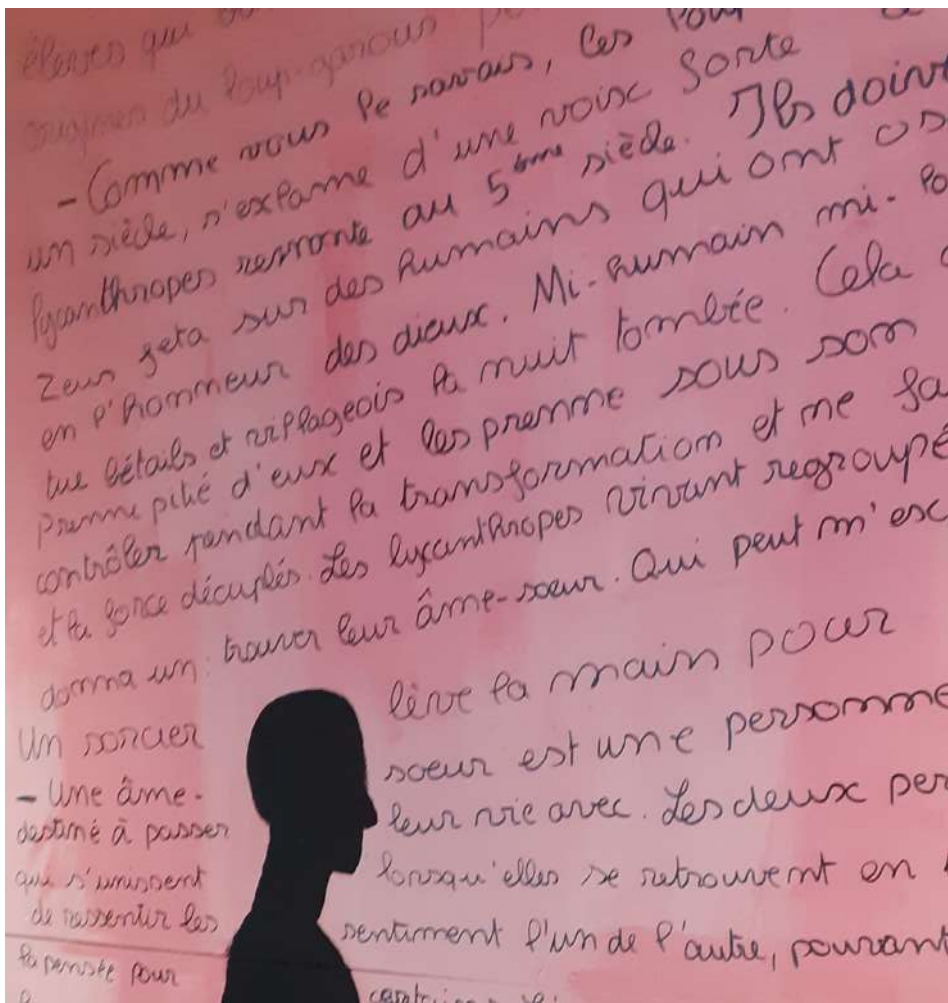 élèves qui
origines du loup-garous
- Comme vous le savais, les loup
un siècle, s'exclame d'une voix Sorte
lycanthropes remonte au 5ème siècle. Ils doivent
Zeus jeta sur des humains qui ont os
en l'honneur des dieux. Mi-humain mi-lo
tue bétails et villageois la nuit tombée. Cela
prenne pitié d'eux et les prenne sous son
contrôler pendant la transformation et ne fa
et la force décuplés. Les lycanthropes vivant regroupé
donna un: trouver leur âme-sœur. Qui peut m'exc
Un sorcier lève la main pour
- Une âme-sœur est une personne
destiné à passer leur vie avec. Les deux per
qui s'unissent lorsqu'elles se retrouvent en
de ressentir les sentiment l'un de l'autre, pouvant
la pensée pour